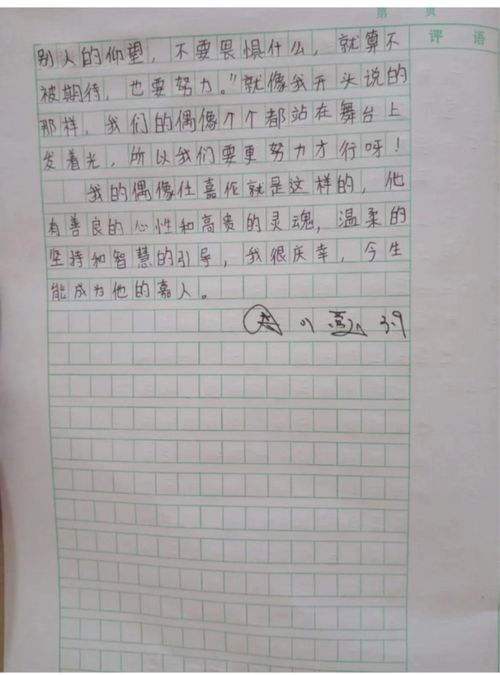 第 页
评 语
别人的仰望，不要畏惧什么，就算不
被期待，也要努力。”就像我开头说的
那样，我们的偶像个个都站在舞台上
发着光，所以我们要更努力才行呀！
我的偶像任嘉伦就是这样的，他
有善良的心性和高贵的灵魂，温柔的
坚持和智慧的引导，我很庆幸，今生
能成为他的嘉人。
3.9